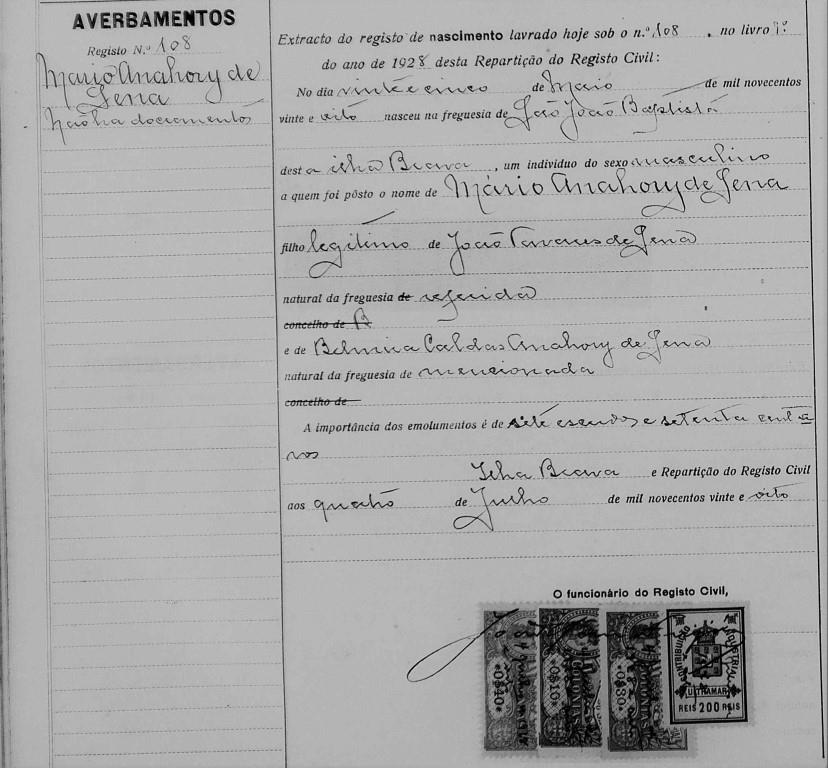 AVERBAMENTOS
Registo N.º 108
Mario Anahory de
Sena
Não ha documentos
Extracto do registo de nascimento lavrado hoje sob o n.º 108, no livro 1º
do ano de 1928 desta Repartição do Registo Civil:
No dia vinte e cinco de Maio de mil novecentos
vinte e oito nasceu na freguesia de São João Baptista
desta ilha Brava, um individuo do sexo masculino
a quem foi pôsto o nome de Mário Anahory de Sena
filho legitimo de João Tavares de Sena
natural da freguesia de referida
concelho de B
e de Belmira Caldas Anahory de Sena
natural da freguesia de mencionada
concelho de
A importância dos emolumentos é de sete escudos e setenta centa
vos
Ilha Brava e Repartição do Registo Civil
aos quatro de Junho de mil novecentos vinte e oito
O funcionário do Registo Civil,
0$10
COLONIAS
0$30
COLONIAS
CONTRIBUIÇÃO INDUSTRIAL
ULTRAMAR
REIS 200 REIS